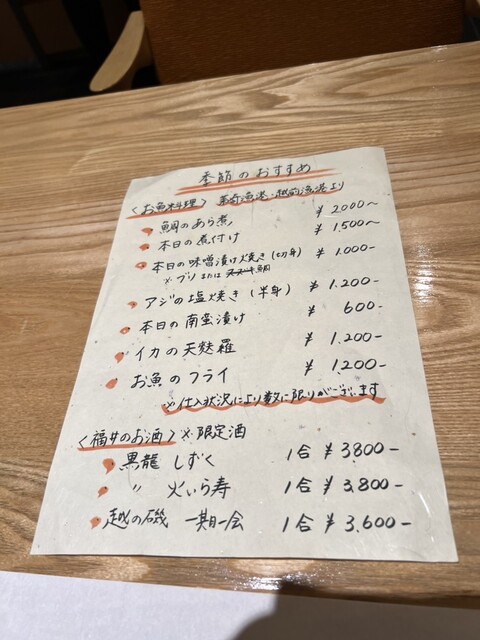 季節のおすすめ
〈お魚料理〉 茱崎漁港・越前漁港より
鯛のあら煮 ¥2000〜
本日の煮付け ¥1,500〜
本日の味噌漬け焼き(切身) ¥1.000-
※ブリまたは 鯛
アジの塩焼き(半身) ¥1.200-
本日の南蛮漬け ¥600-
イカの天麩羅 ¥1.200-
お魚のフライ ¥1200-
※仕入状況により数に限りがございます
〈福井のお酒〉※限定酒
黒龍 しずく 1合 ¥3800-
〃 火いら寿 1合 ¥3,800-
越の磯 一期一会 1合 ¥3.600-